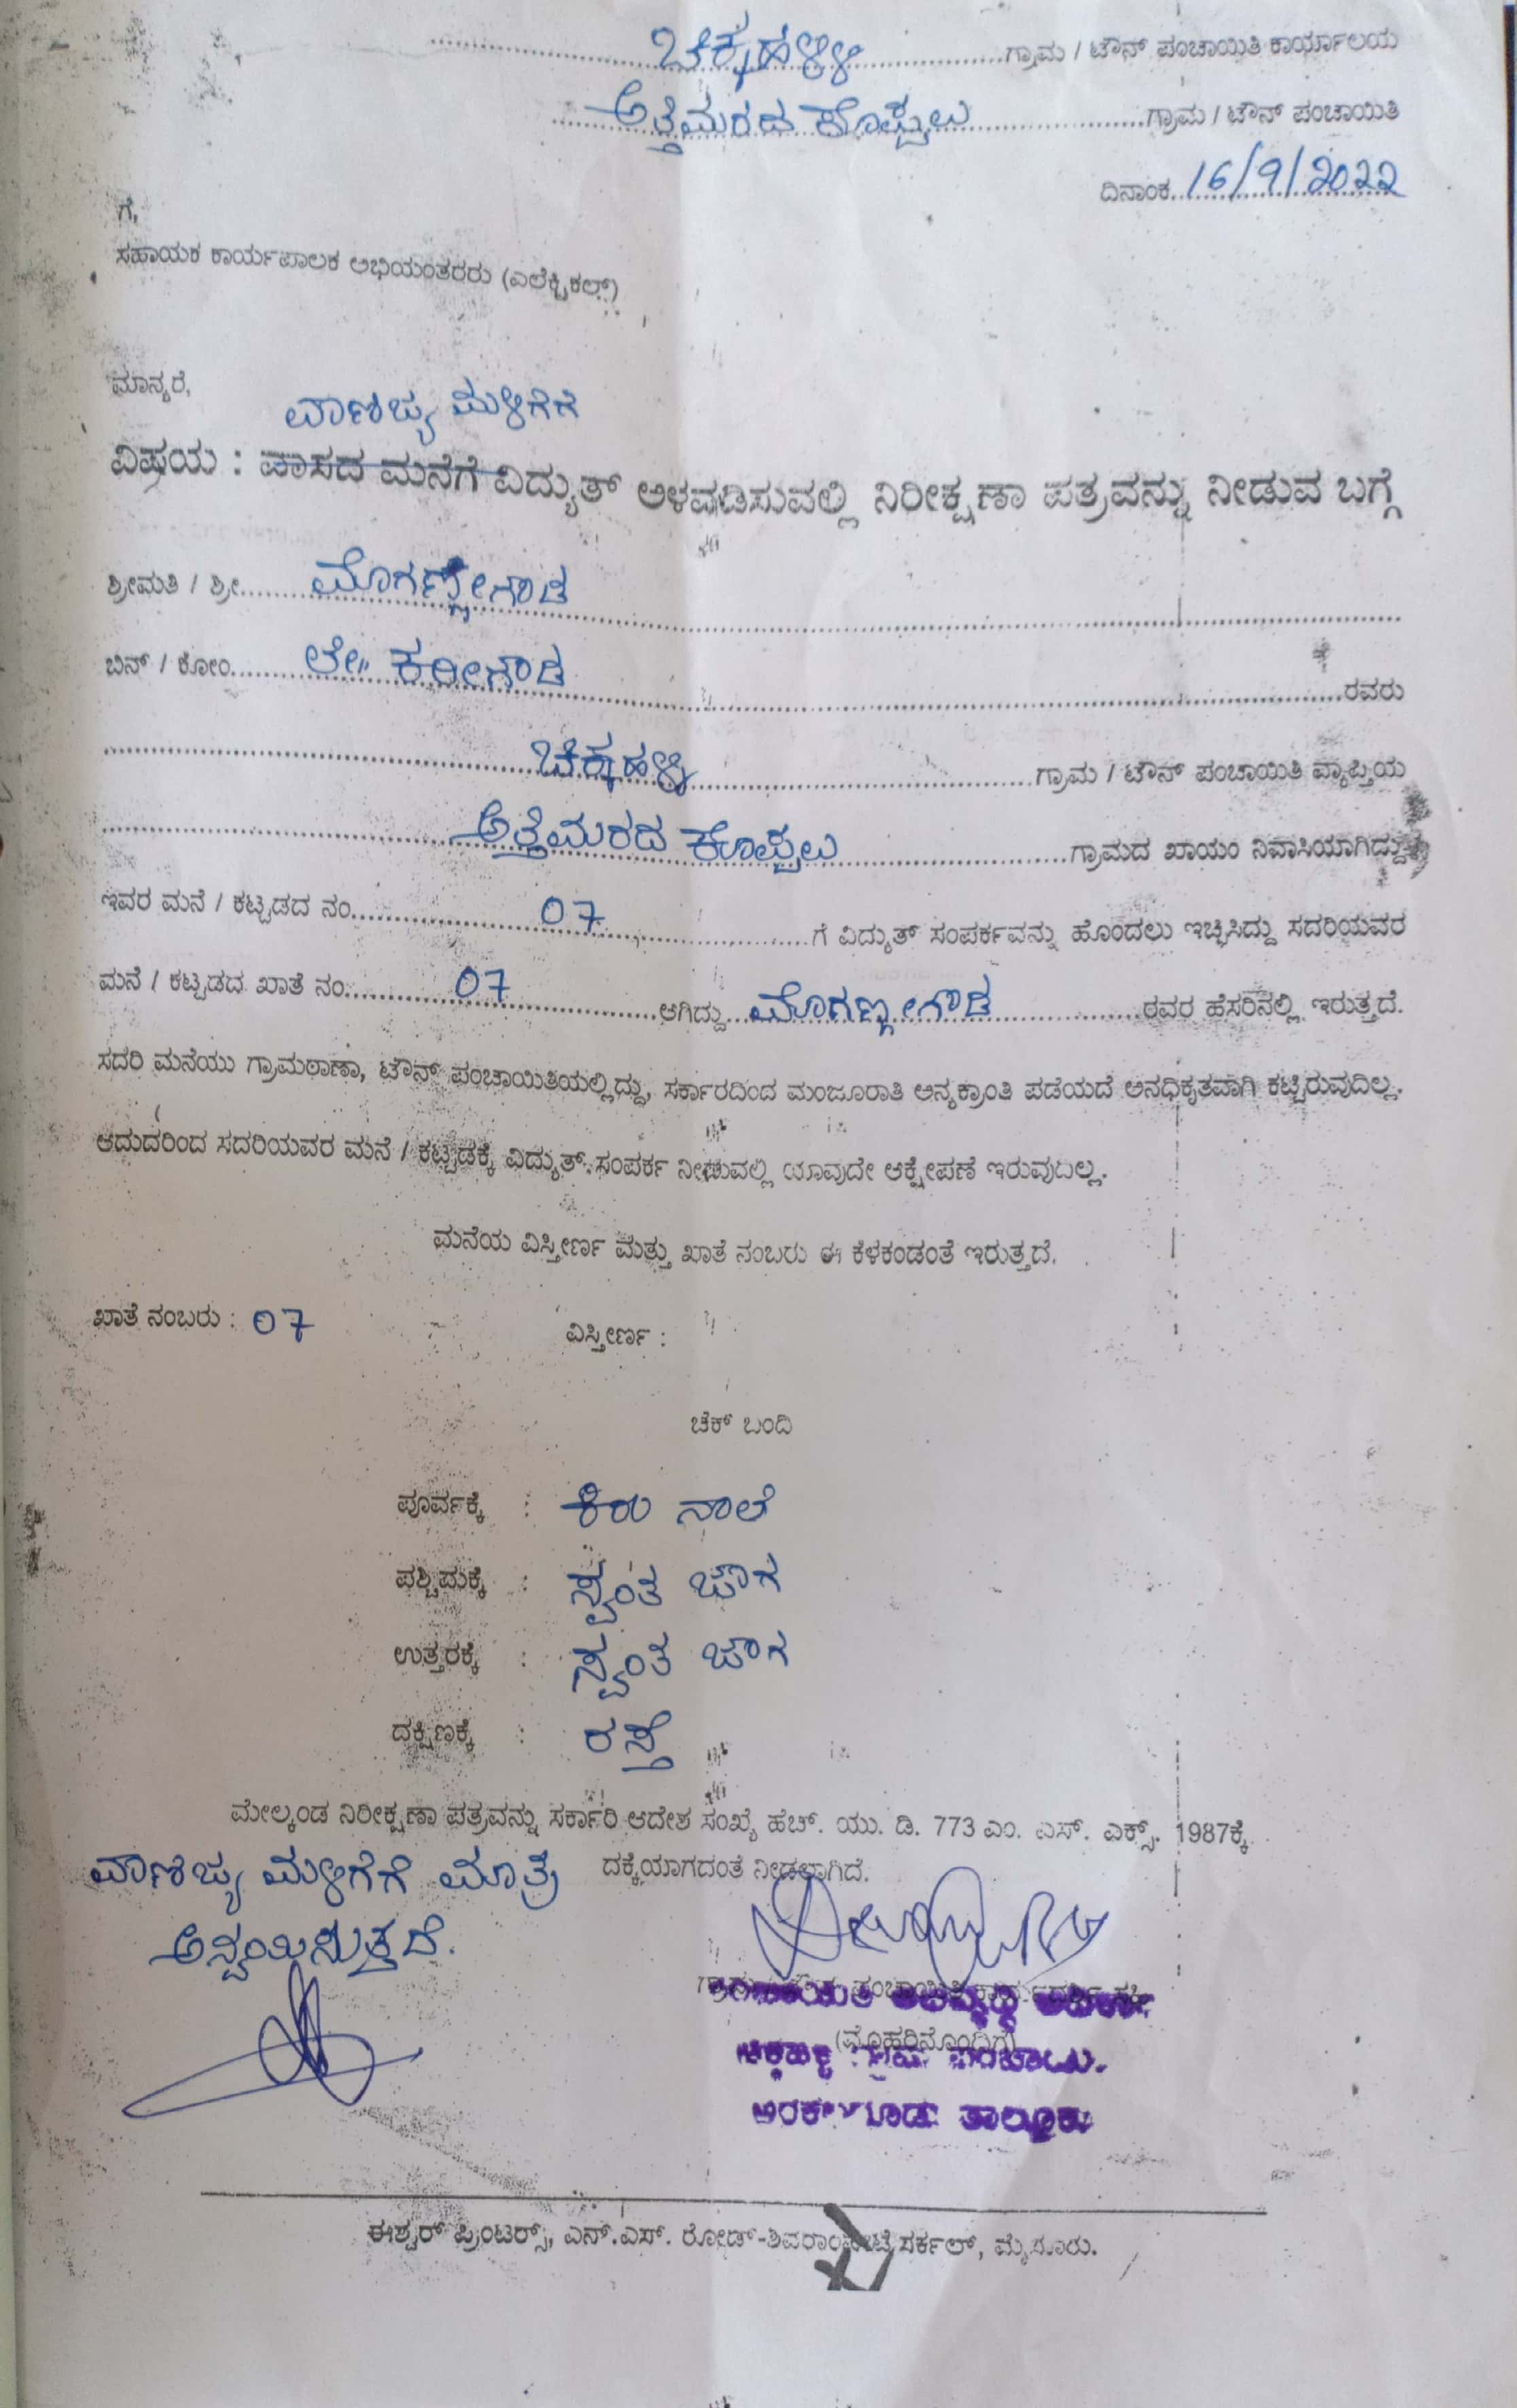 ಚಿಕ್ಕಹಳ್ಳಿ ಗ್ರಾಮ / ಟೌನ್ ಪಂಚಾಯಿತಿ ಕಾರ್ಯಾಲಯ
ಅತ್ತೆಮರದ ಕೊಪ್ಪಲು ಗ್ರಾಮ / ಟೌನ್ ಪಂಚಾಯಿತಿ
ದಿನಾಂಕ 16/9/2022
ಗೆ,
ಸಹಾಯಕ ಕಾರ್ಯಪಾಲಕ ಅಭಿಯಂತರರು (ಎಲೆಕ್ಟ್ರಿಕಲ್)
ಮಾನ್ಯರೆ,
ವಾಣಿಜ್ಯ ಮಳಿಗೆಗೆ
ವಿಷಯ : ವಾಸದ ಮನೆಗೆ ವಿದ್ಯುತ್ ಅಳವಡಿಸುವಲ್ಲಿ ನಿರೀಕ್ಷಣಾ ಪತ್ರವನ್ನು ನೀಡುವ ಬಗ್ಗೆ
ಶ್ರೀಮತಿ / ಶ್ರೀ ಮೊಗಣ್ಣೇಗೌಡ
ಬಿನ್ / ಕೋಂ ಲೇ॥ ಕರೀಗೌಡ ರವರು
ಚಿಕ್ಕಹಳ್ಳಿ ಗ್ರಾಮ / ಟೌನ್ ಪಂಚಾಯಿತಿ ವ್ಯಾಪ್ತಿಯ
ಅತ್ತೆಮರದ ಕೊಪ್ಪಲು ಗ್ರಾಮದ ಖಾಯಂ ನಿವಾಸಿಯಾಗಿದ್ದು
ಇವರ ಮನೆ / ಕಟ್ಟಡದ ನಂ. 07 ಗೆ ವಿದ್ಯುತ್ ಸಂಪರ್ಕವನ್ನು ಹೊಂದಲು ಇಚ್ಛಿಸಿದ್ದು ಸದರಿಯವರ
ಮನೆ / ಕಟ್ಟಡದ ಖಾತೆ ನಂ. 07 ಆಗಿದ್ದು ಮೊಗಣ್ಣೇಗೌಡ ರವರ ಹೆಸರಿನಲ್ಲಿ ಇರುತ್ತದೆ.
ಸದರಿ ಮನೆಯು ಗ್ರಾಮಠಾಣಾ, ಟೌನ್ ಪಂಚಾಯಿತಿಯಲ್ಲಿದ್ದು, ಸರ್ಕಾರದಿಂದ ಮಂಜೂರಾತಿ ಅನ್ಯಕ್ರಾಂತಿ ಪಡೆಯದೆ ಅನಧಿಕೃತವಾಗಿ ಕಟ್ಟಿರುವುದಿಲ್ಲ.
ಆದುದರಿಂದ ಸದರಿಯವರ ಮನೆ / ಕಟ್ಟಡಕ್ಕೆ ವಿದ್ಯುತ್ ಸಂಪರ್ಕ ನೀಡುವಲ್ಲಿ ಯಾವುದೇ ಆಕ್ಷೇಪಣೆ ಇರುವುದಿಲ್ಲ.
ಮನೆಯ ವಿಸ್ತೀರ್ಣ ಮತ್ತು ಖಾತೆ ನಂಬರು ಈ ಕೆಳಕಂಡಂತೆ ಇರುತ್ತದೆ.
ಖಾತೆ ನಂಬರು : 07 ವಿಸ್ತೀರ್ಣ :
ಚೆಕ್ ಬಂದಿ
ಪೂರ್ವಕ್ಕೆ : ಕಿರು ನಾಲೆ
ಪಶ್ಚಿಮಕ್ಕೆ : ಸ್ವಂತ ಜಾಗ
ಉತ್ತರಕ್ಕೆ : ಸ್ವಂತ ಜಾಗ
ದಕ್ಷಿಣಕ್ಕೆ : ರಸ್ತೆ
ಮೇಲ್ಕಂಡ ನಿರೀಕ್ಷಣಾ ಪತ್ರವನ್ನು ಸರ್ಕಾರಿ ಆದೇಶ ಸಂಖ್ಯೆ ಹೆಚ್. ಯು. ಡಿ. 773 ಎಂ. ಎಸ್. ಎಕ್ಸ್. 1987ಕ್ಕೆ
ದಕ್ಕೆಯಾಗದಂತೆ ನೀಡಲಾಗಿದೆ.
ವಾಣಿಜ್ಯ ಮಳಿಗೆಗೆ ಮಾತ್ರ
ಅನ್ವಯಿಸುತ್ತದೆ.
ಪಂಚಾಯಿತಿ ಅಭಿವೃದ್ಧಿ ಅಧಿಕಾರಿ
(ಮೊಹರಿನೊಂದಿಗೆ)
ಚಿಕ್ಕಹಳ್ಳಿ ಗ್ರಾಮ ಪಂಚಾಯಿತಿ.
ಅರಕಲಗೂಡು ತಾಲ್ಲೂಕು
ಈಶ್ವರ್ ಪ್ರಿಂಟರ್ಸ್, ಎನ್.ಎಸ್. ರೋಡ್-ಶಿವರಾಂಪೇಟೆ ಸರ್ಕಲ್, ಮೈಸೂರು.